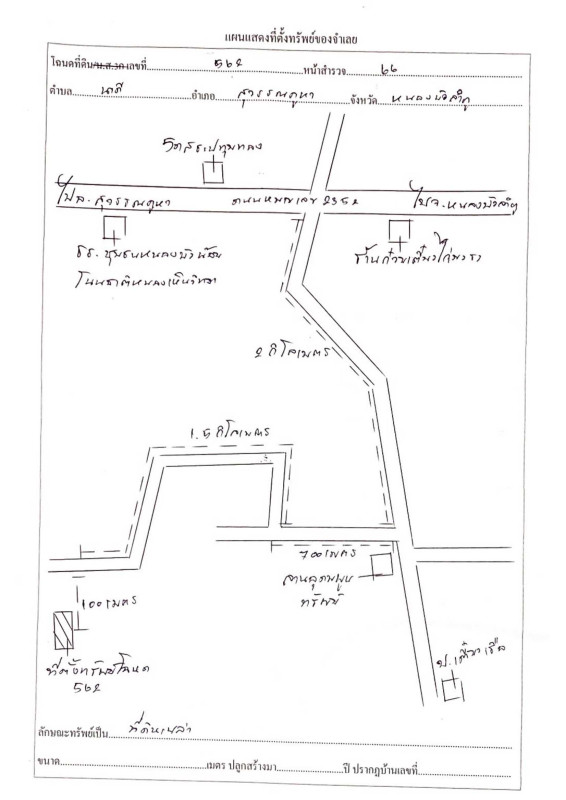 แผนแสดงที่ตั้งทรัพย์ของจำเลย
โฉนดที่ดิน/น.ส.3ก เลขที่ 562 หน้าสำรวจ 66
ตำบล นาดี อำเภอ สุวรรณคูหา จังหวัด หนองบัวลำภู
วัดสระปทุมทอง
ไป อ.สุวรรณคูหา ถนนหมายเลข 2352 ไป จ.หนองบัวลำภู
รร.ชุมชนหนองบัวน้อย
โนนชาติหนองเหินวิทยา
ร้านก๋วยเตี๋ยวไก่
2 กิโลเมตร
1.5 กิโลเมตร
700 เมตร
ลานอุดมพูน
ทรัพย์
100 เมตร
ที่ตั้งทรัพย์โฉนด
562
ลักษณะทรัพย์เป็น ที่ดินเปล่า
ขนาด เมตร ปลูกสร้างมา ปี ปรากฏบ้านเลขที่